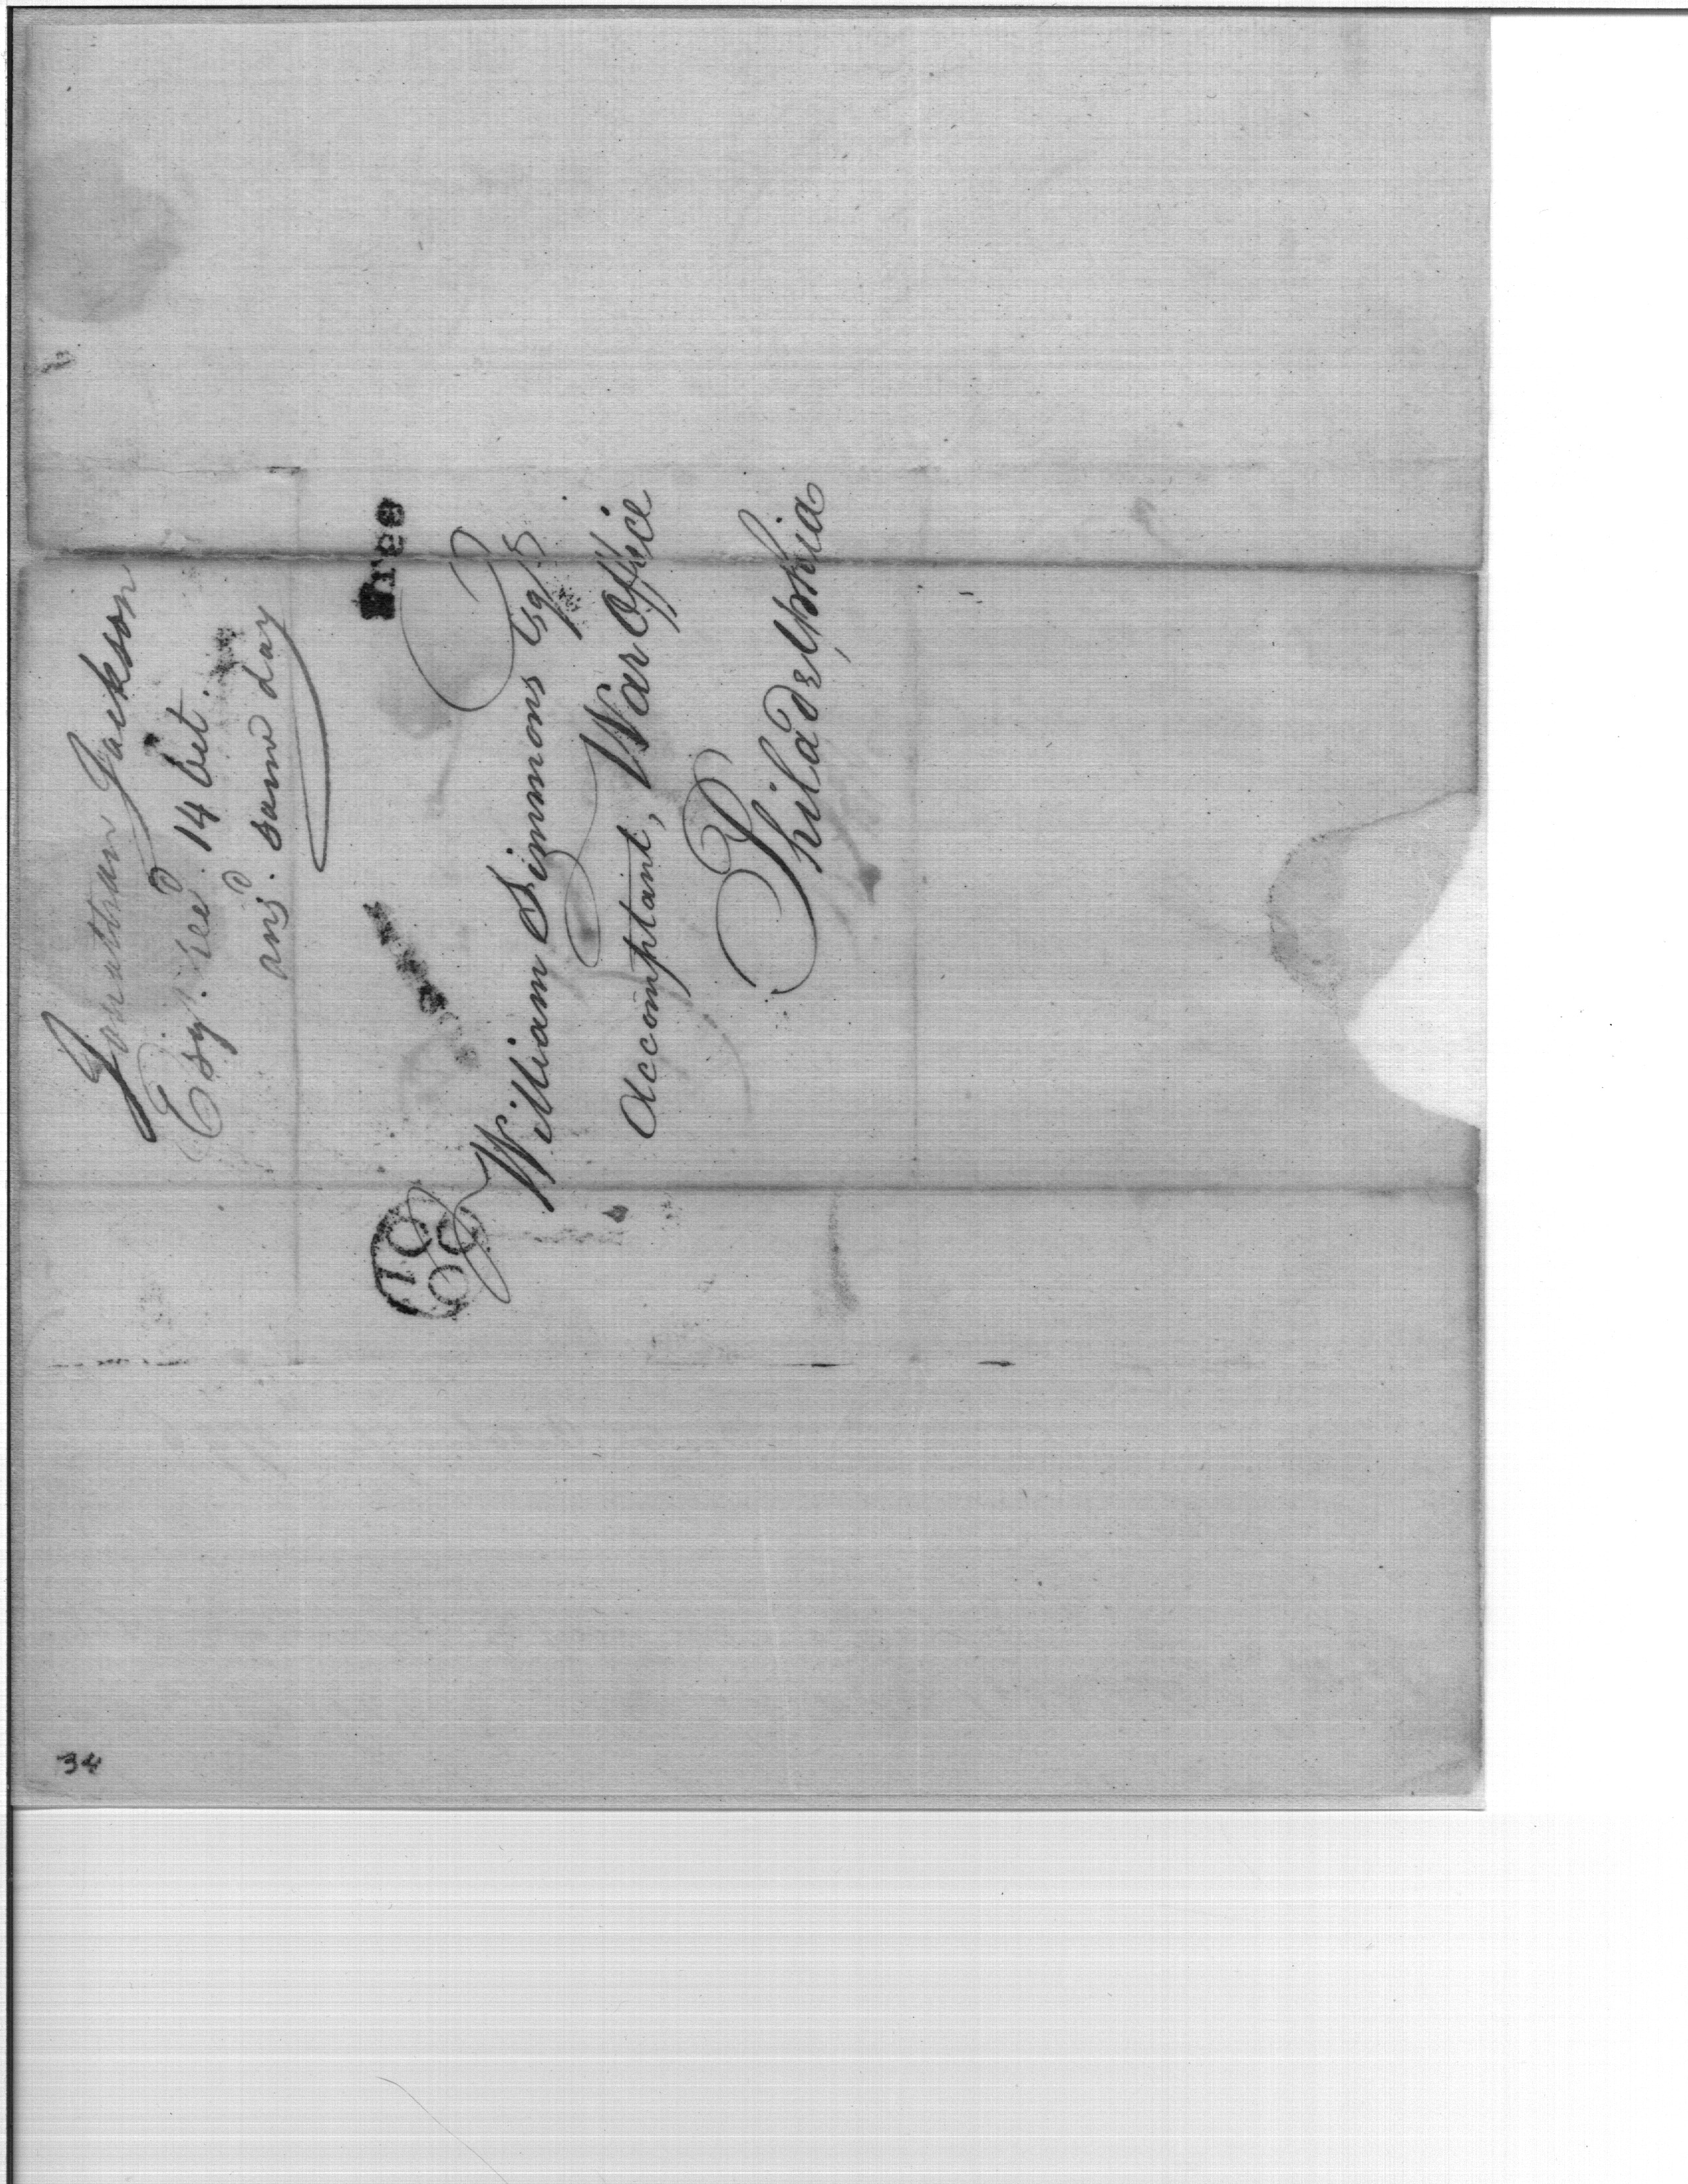 Jonathan Jackson
Esqr. recd. 14 Oct.
ansd. same day
Free
10 OC
William Simmons Esqr
Accomptant, War Office
Philadelphia
34